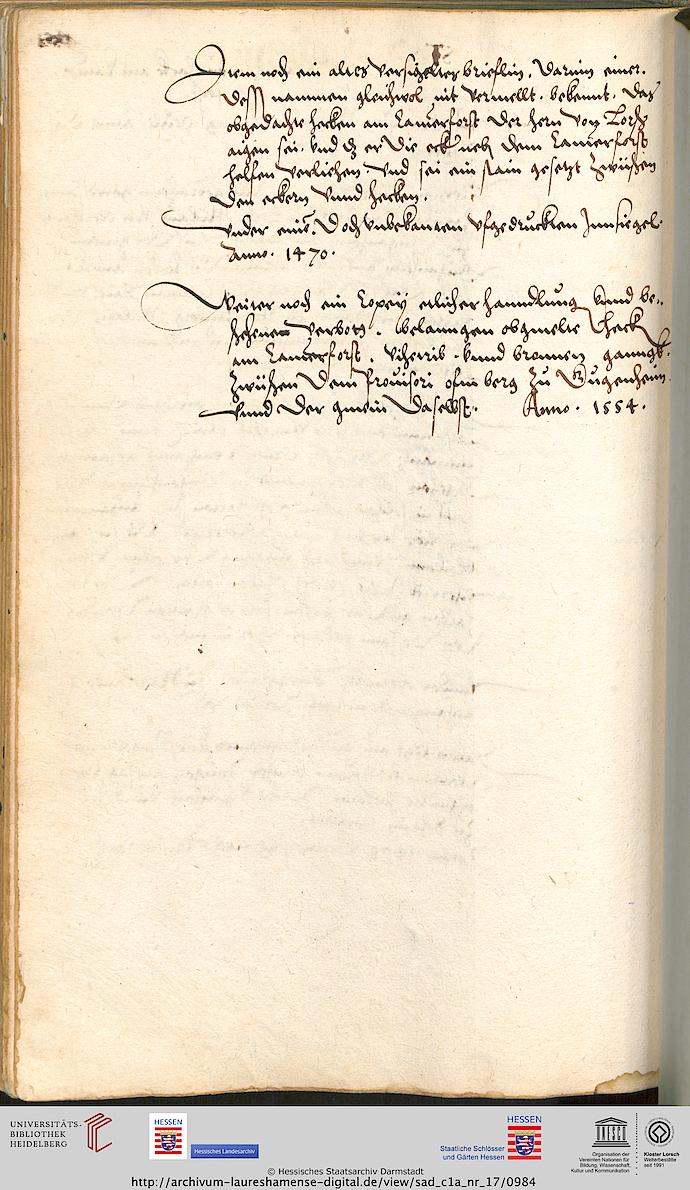 Item noch ein altes versigeltes brieflin, Darinn einer,
Dess nammen gleichwol nit vermellt, bekennt, das
obgedachte hecken am Lamerforst der hern von Lorsch
aigen sei, vnd dz er die eck neben dem Lamerforst
helfen verlichen, vnd sei ein stain gesetzt zwüschen
den eckern vnnd hecken.
vnder einē, Doch vnbekantem vfgedruckten Innsiegel,
Anno. 1470.
Weiter noch ein Copey etlicher hanndlung vnnd be-
schehenen verbots, belanngen obgmelte heck
am Lamerforst, vihetrib, vnnd bronnen ganngk,
zwüschen dem Prouisori ofm berg zu Gugenheim
vnnd der gmein daselbst. Anno. 1554.
UNIVERSITÄTS-
BIBLIOTHEK
HEIDELBERG
HESSEN
Hessisches Landesarchiv
HESSEN
Staatliche Schlösser
und Gärten Hessen
Organisation der
Vereinten Nationen für
Bildung, Wissenschaft,
Kultur und Kommunikation
Kloster Lorsch
Welterbestätte
seit 1991
© Hessisches Staatsarchiv Darmstadt
http://archivum-laureshamense-digital.de/view/sad_c1a_nr_17/0984